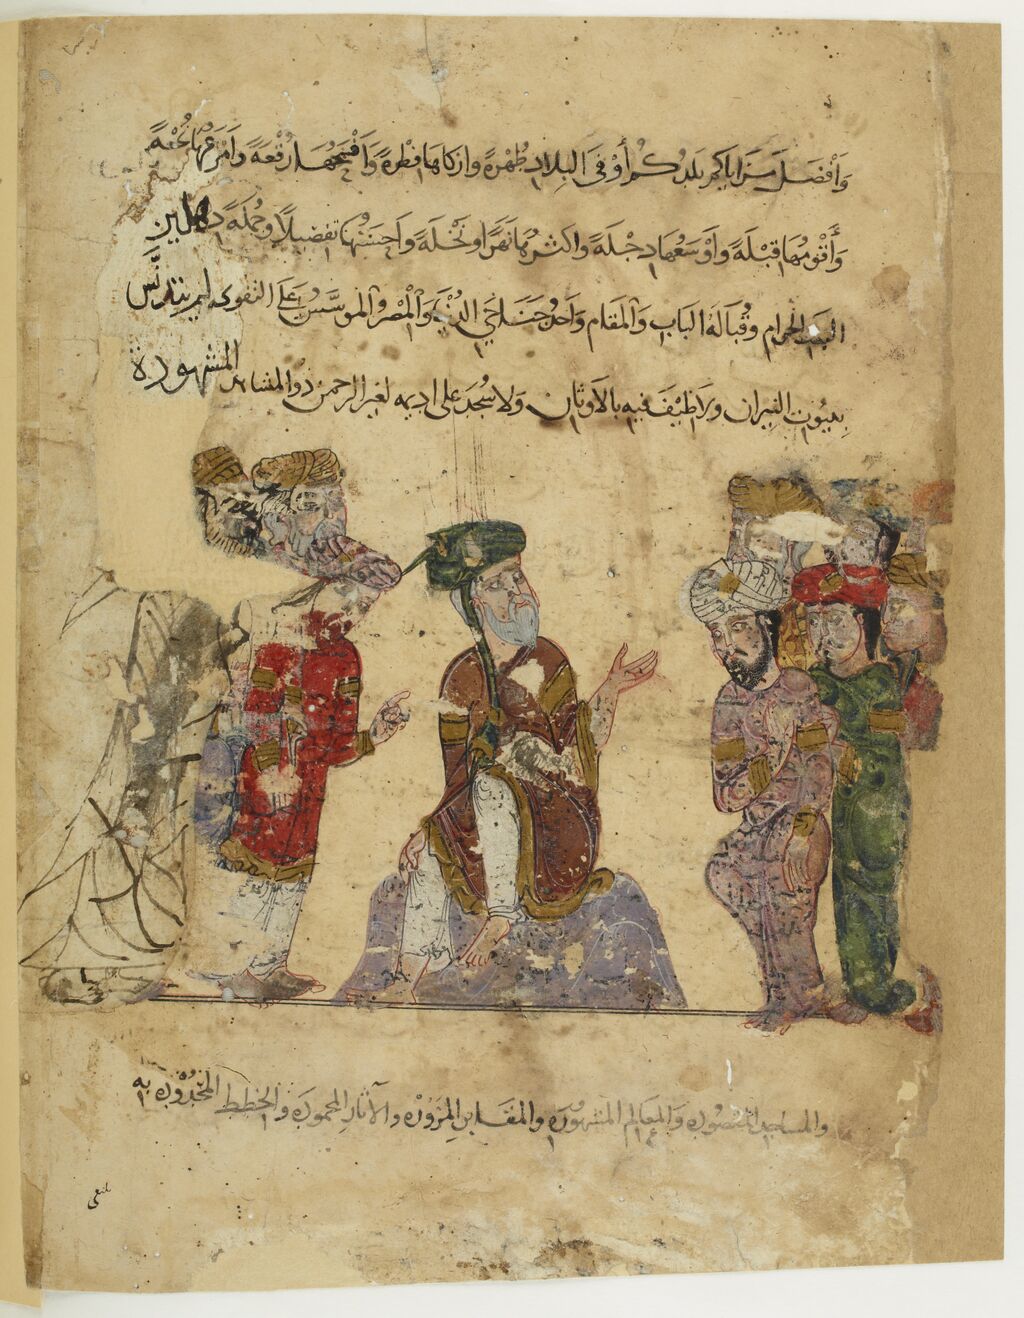 وَأَفْضَلَ مَزَاياكم بَلدُكُم أَوْفَى البِلادِ طُهْرَةً وازكاها فطرةً وَأَفْسَحُهَا رُقْعَةً وَأَمرَعُهَا نُجْعَةً
وَأَقْوَمُهَا قِبْلَةً وَأَوْسَعُهَا دِجْلَةً واكثرُها نَهَرًا ونَخْلَةً وَأَحسَنُهَا تفضيلًا وجُملَةً دهلين
البيت الحَرام وقُبَالَةُ الباب وَالمَقام وَأَحَدُ جَنَاحَي الدُّنْيَا وَالمِصْرُ والموسَّسُ عَلى التقوى لم يتدنَّس
بِبيُوت النيران ولا طِيفَ فيه بالأوثان ولا سُجِدَ على اديمه لغير الرحمن ذو المشاهد المشهورة
والمساجد المقصوده وَالمعَالِم المشهورَه والمقابر المزورَه والآثارِ المحمودَه والخطط المحدُودَه به